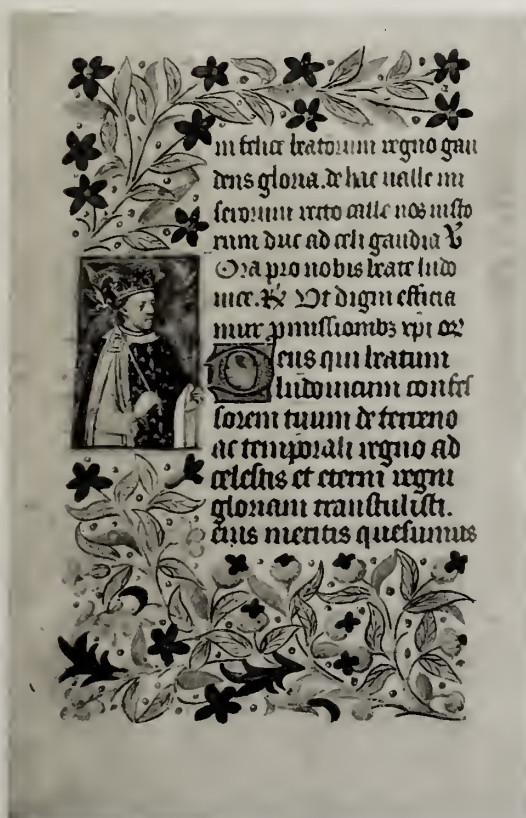 in felice beatorum regno gau
dens gloria. de hac ualle mi
serorum recto calle nos iusto
rum duc ad celi gaudia ℣
Ora pro nobis beate ludo
uice. ℟ Vt digni efficia
mur ꝓmissionibꝫ xpi orꝰ
Deus qui beatum
ludouicum confes
sorem tuum de terreno
ac temporali regno ad
celestis et eterni regni
gloriam transtulisti.
eius meritis quesumus